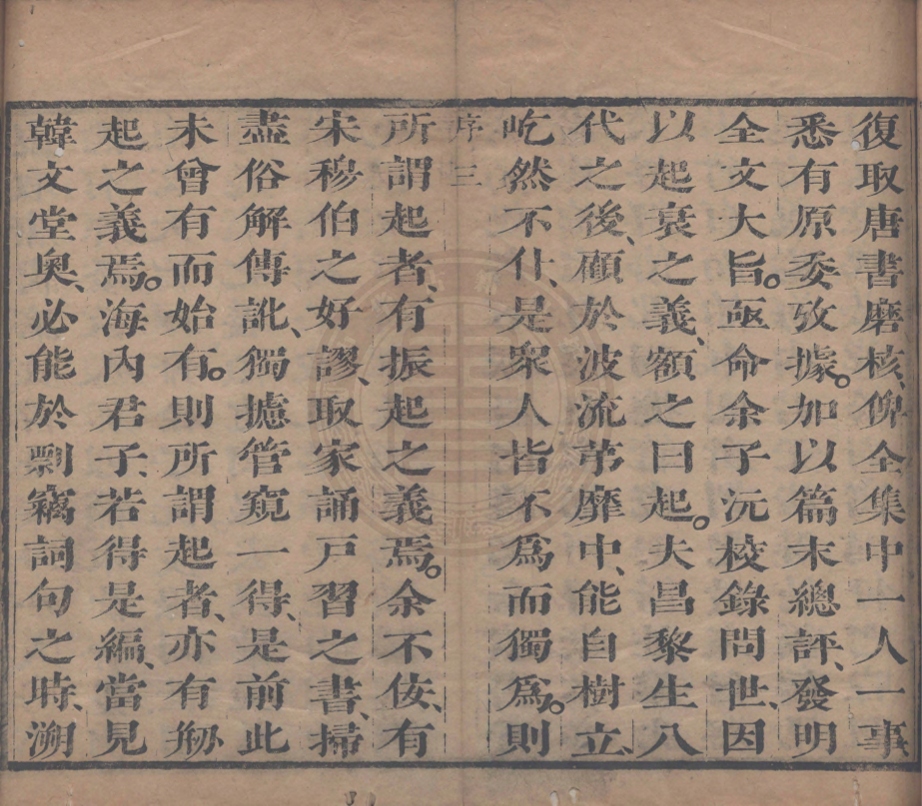 復取唐書磨核、俾全集中一人一事
悉有原委攷據。加以篇末總評、發明
全文大旨。亟命余子沅校錄問世、因
以起衰之義、額之曰起。夫昌黎生八
代之後、顧於波流茅靡中、能自樹立、
屹然不仆、是眾人皆不爲而獨爲。則
序 三
所謂起者、有振起之義焉。余不佞、有
宋穆伯之好、謬取家誦戸習之書、掃
盡俗解傳訛、獨攄管窺一得、是前此
未曾有而始有。則所謂起者、亦有剏
起之義焉。海內君子、若得是編、當見
韓文堂奧、必能於剽竊詞句之時、溯